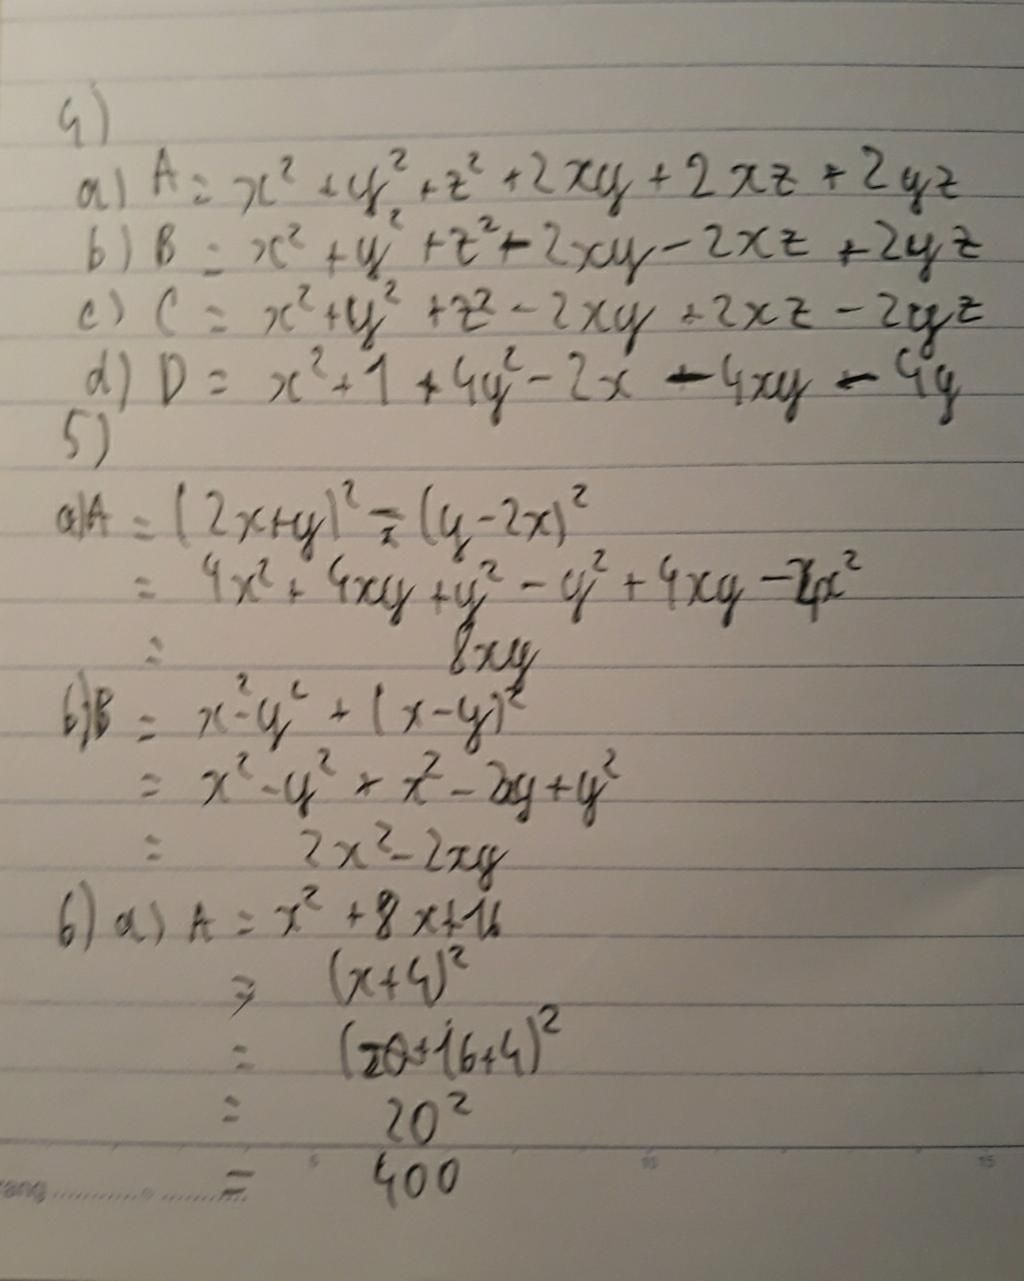 4)
a) A = x² + y² + z² + 2xy + 2xz + 2yz
b) B = x² + y² + z² - 2xy - 2xz + 2yz
c) C = x² + y² + z² - 2xy + 2xz - 2yz
d) D = x² + 1 + 4y² - 2x - 4xy - 4y
5)
a) A = (2x+y)² - (y-2x)²
= 4x² + 4xy + y² - y² + 4xy - 4x²
= 8xy
b) B = x² - y² + (x-y)²
= x² - y² + x² - 2xy + y²
= 2x² - 2xy
6) a) A = x² + 8x + 16
= (x+4)²
= (16+4)²
= 20²
= 400
5 10 15